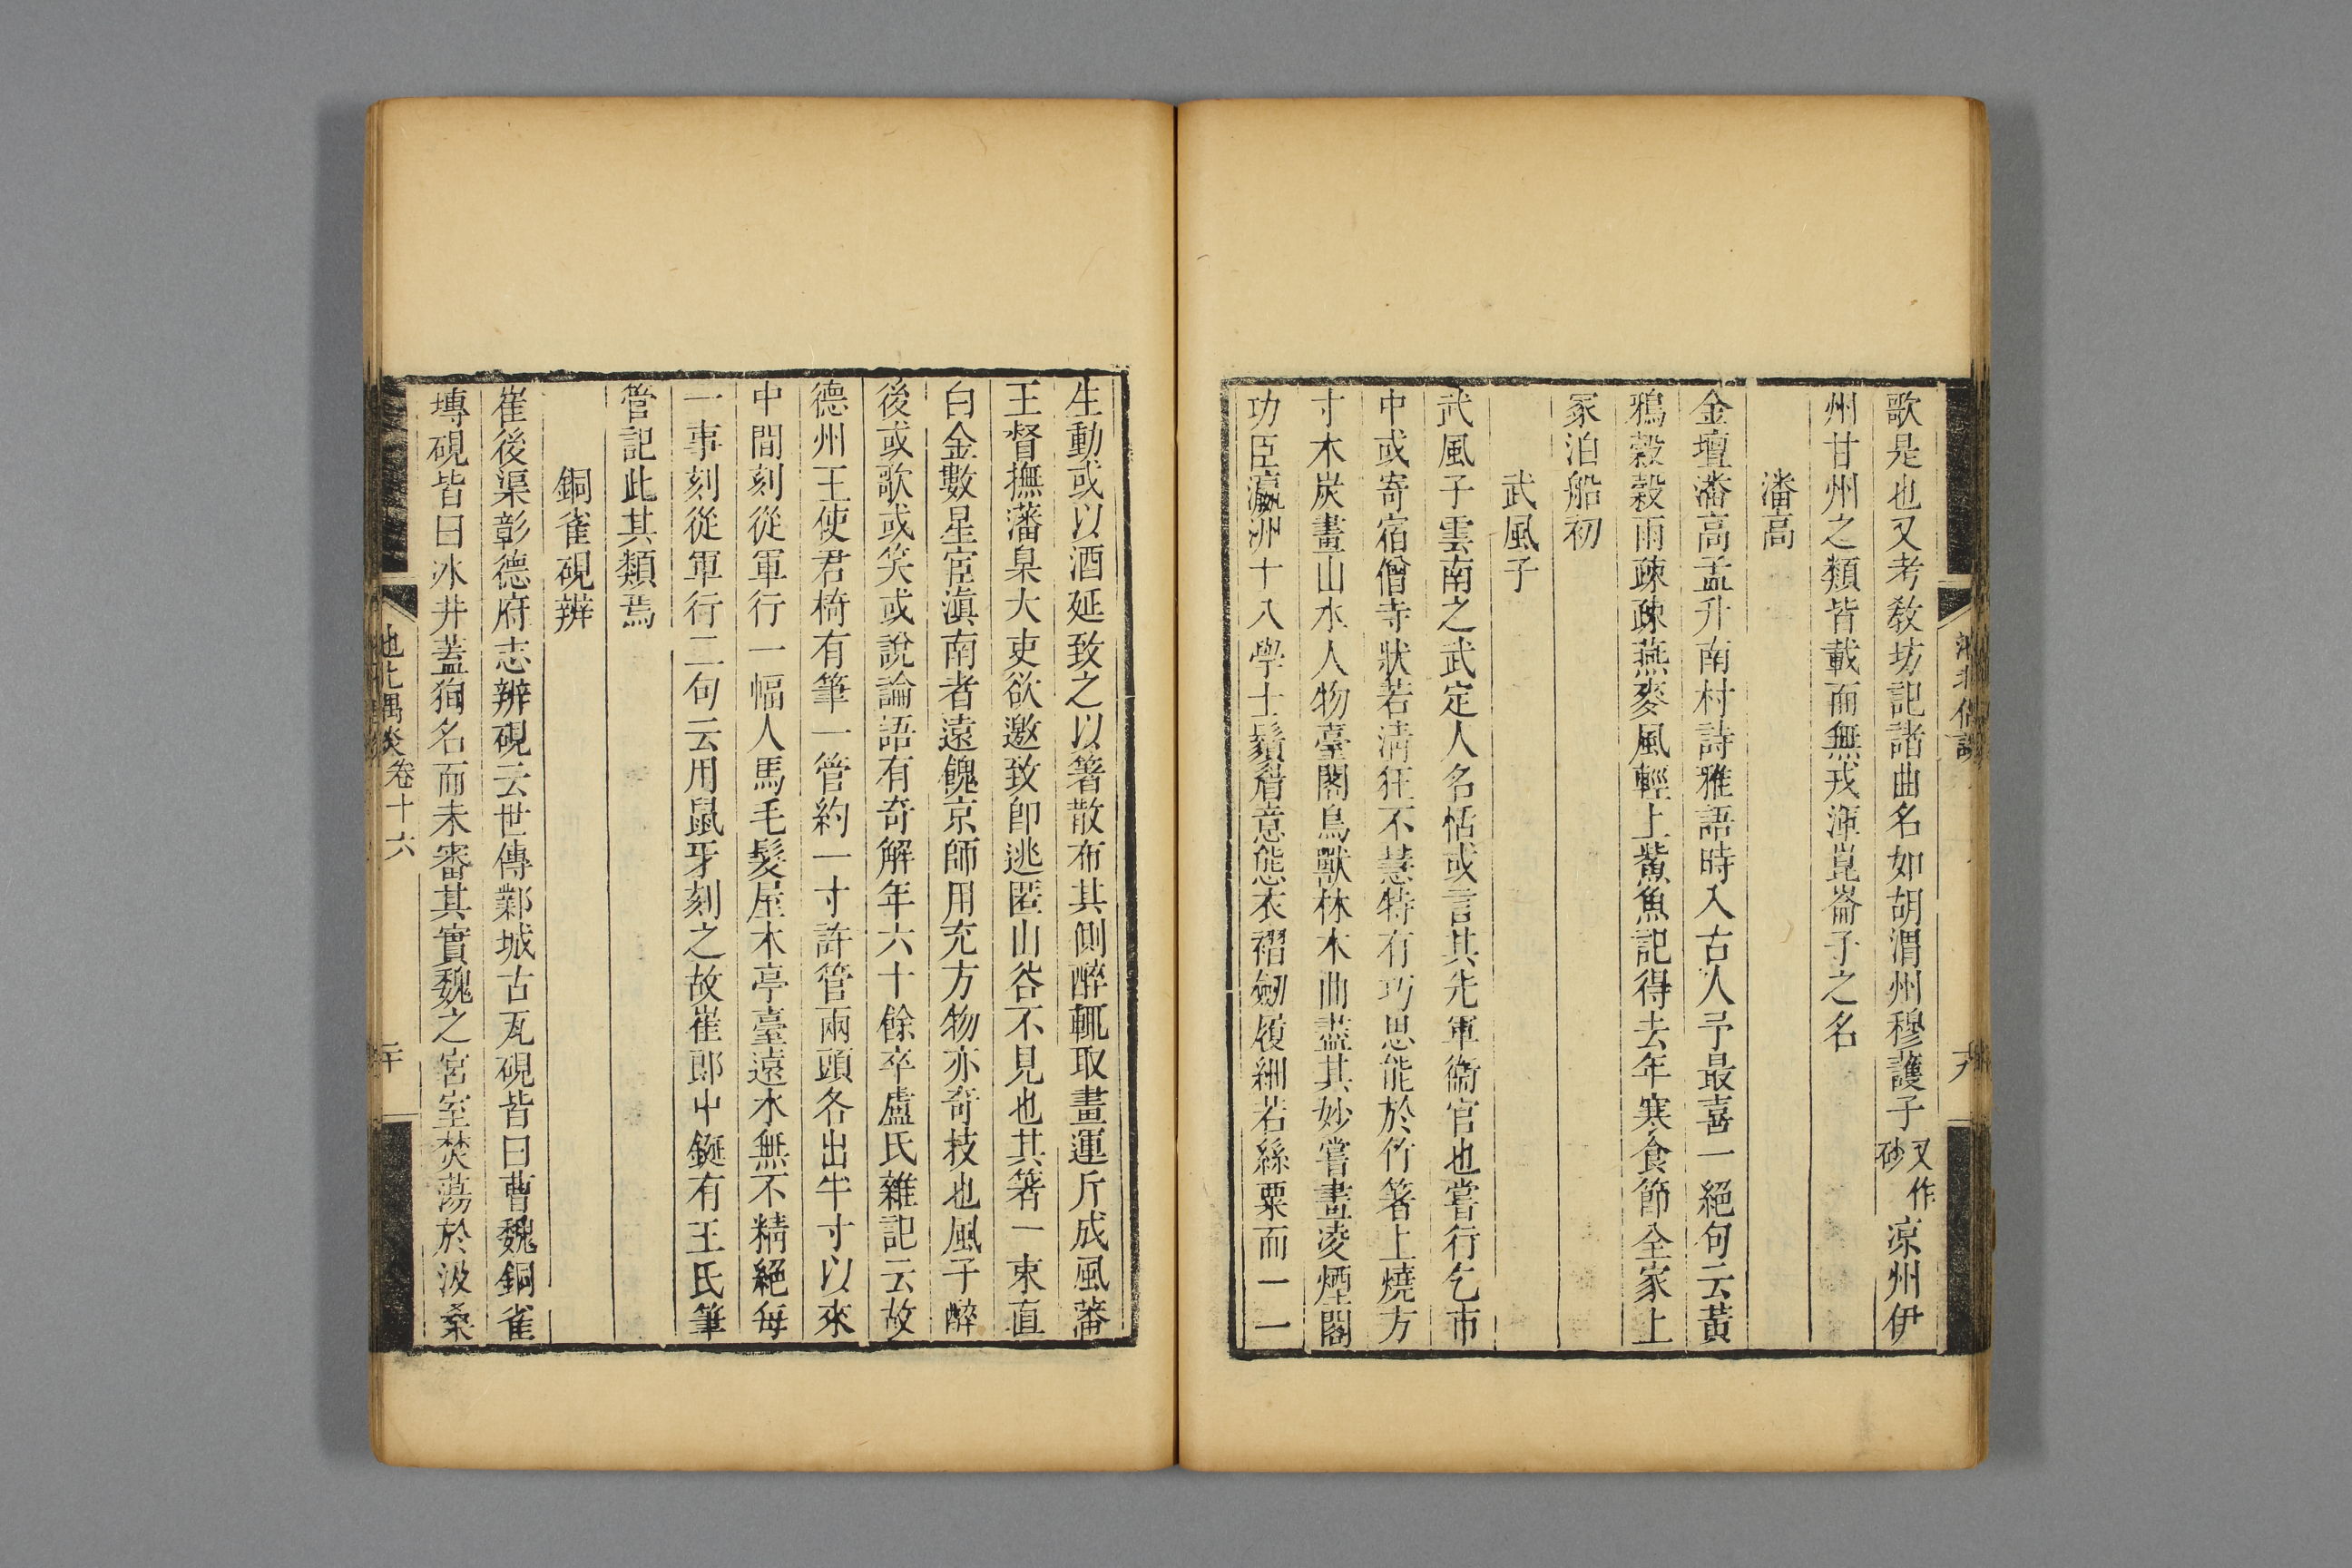 歌是也又考敎坊記諸曲名如胡渭州穆護子又作砂凉州伊
州甘州之類皆載而無戎渾崑崙子之名
潘高
金壇潘高孟升南村詩雅語時入古人予最喜一絕句云黃
鴉穀穀雨疎疎燕麥風輕上鮆魚記得去年寒食節全家上
冢泊船初
武風子
武風子雲南之武定人名恬或言其先軍衞官也嘗行乞市
中或寄宿僧寺狀若淸狂不慧特有巧思能於竹箸上燒方
寸木炭畫山水人物臺閣鳥獸林木曲盡其妙嘗畫凌煙閣
功臣瀛洲十八學士鬚眉意態衣褶劒履細若絲粟而一一
生動或以酒延致之以箸散布其側醉輒取畫運斤成風藩
王督撫藩臬大吏欲邀致卽逃匿山谷不見也其箸一束直
白金數星宦滇南者遠餽京師用充方物亦奇技也風子醉
後或歌或笑或說論語有奇解年六十餘卒盧氏雜記云故
德州王使君椅有筆一管約一寸許管兩頭各出半寸以來
中間刻從軍行一幅人馬毛髮屋木亭臺遠水無不精絕每
一事刻從軍行二句云用鼠牙刻之故崔郎中鋋有王氏筆
管記此其類焉
銅雀硯辨
崔後渠彰德府志辨硯云世傳鄴城古瓦硯皆曰曹魏銅雀
塼硯皆曰冰井蓋狥名而未審其實魏之宮室焚蕩於汲桑
池北偶談卷十六
二十